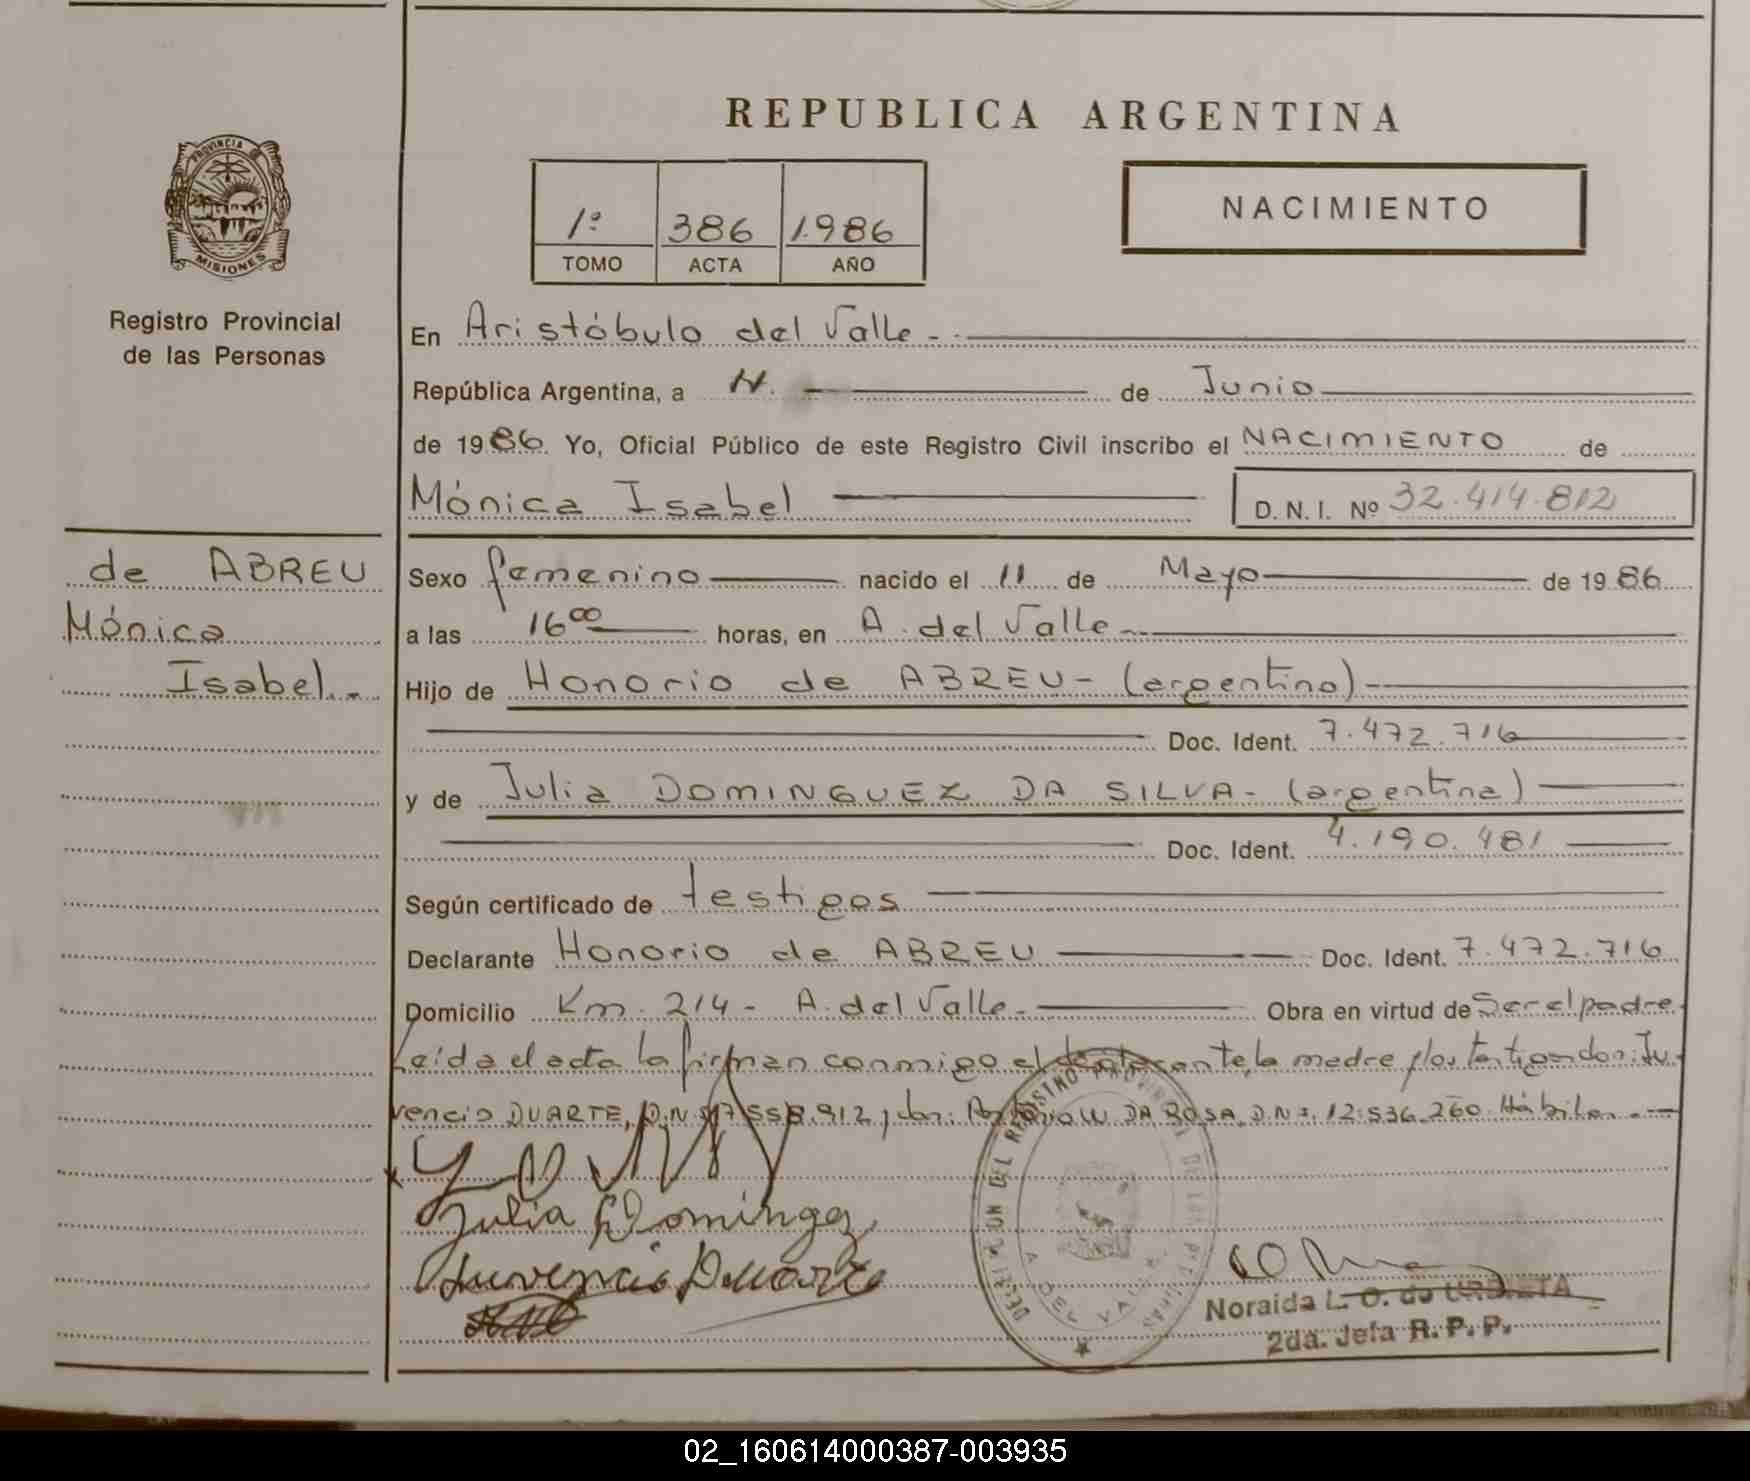 REPUBLICA ARGENTINA
PROVINCIA DE MISIONES
Registro Provincial
de las Personas
1º 386 1986
TOMO ACTA AÑO
NACIMIENTO
En Aristóbulo del Valle -
República Argentina, a 11. de Junio
de 1986. Yo, Oficial Público de este Registro Civil inscribo el NACIMIENTO de
Mónica Isabel D.N.I. Nº 32.414.812
de ABREU
Mónica
Isabel.-
Sexo femenino nacido el 11 de Mayo de 1986
a las 16 00 horas, en A. del Valle -
Hijo de Honorio de ABREU - (argentino) -
Doc. Ident. 7.472.716
y de Julia DOMINGUEZ DA SILVA - (argentina)
Doc. Ident. 4.190.481
Según certificado de testigos
Declarante Honorio de ABREU Doc. Ident. 7.472.716
Domicilio Km. 214 - A. del Valle - Obra en virtud de Ser el padre.
Leída el acta la firman conmigo el declarante, la madre y los testigos don: Ju-
vencio DUARTE, D.N.I. 7.558.912 y don: W. DA ROSA D.N.I. 12.536.260 Hábiles. -
Julia Dominguez
Juvencio Duarte
DEL REGISTRO PROVINCIAL DE LAS PERSONAS
A. DEL VALLE
Noraida L. O. de URBIETA
2da. Jefa R. P. P.
02_160614000387-003935